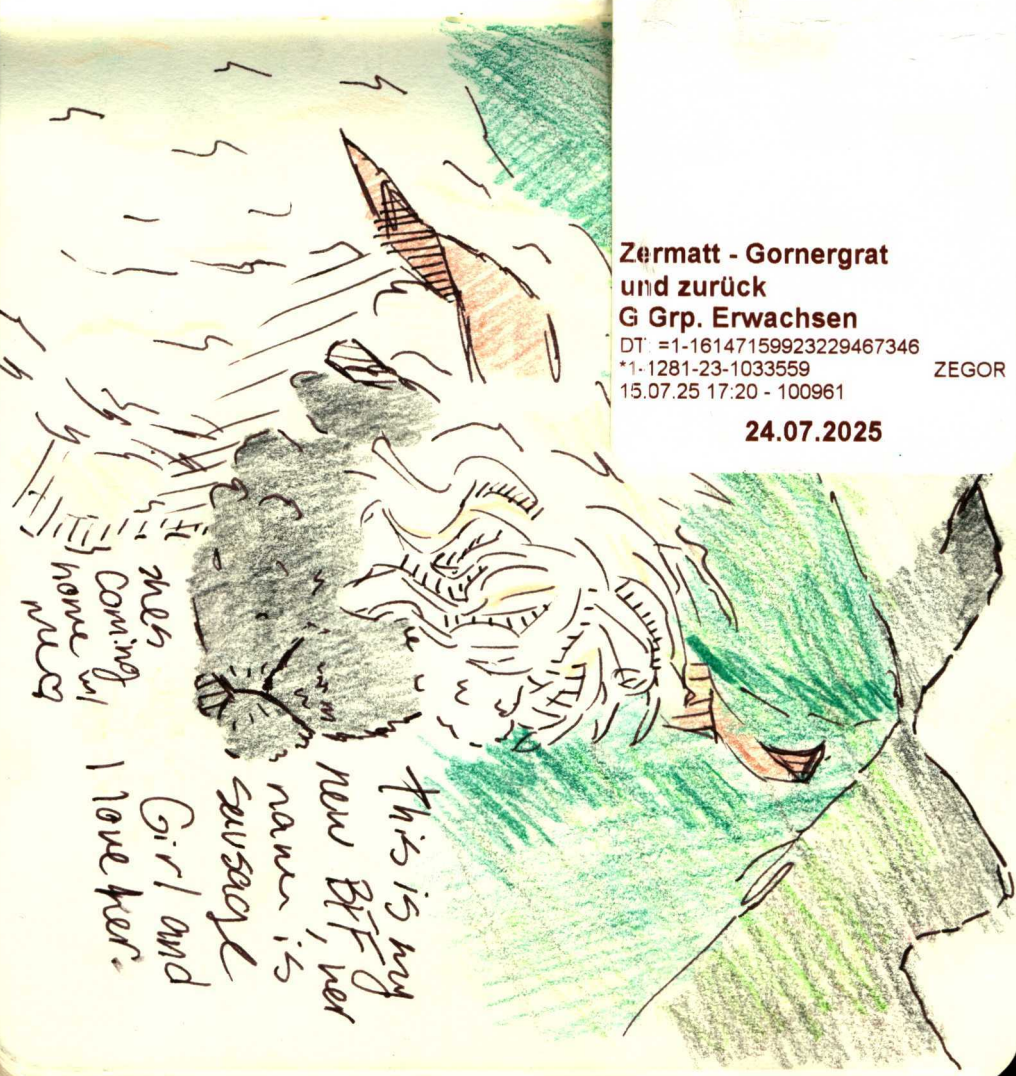 Zermatt - Gornergrat
und zurück
G Grp. Erwachsen
DT: =1-16147159923229467346
*1-1281-23-1033559 ZEGOR
15.07.25 17:20 - 100961
24.07.2025
this is my
new BFF, her
name is
sausage
Girl and
I love her.
shes
coming
home w/
me♡